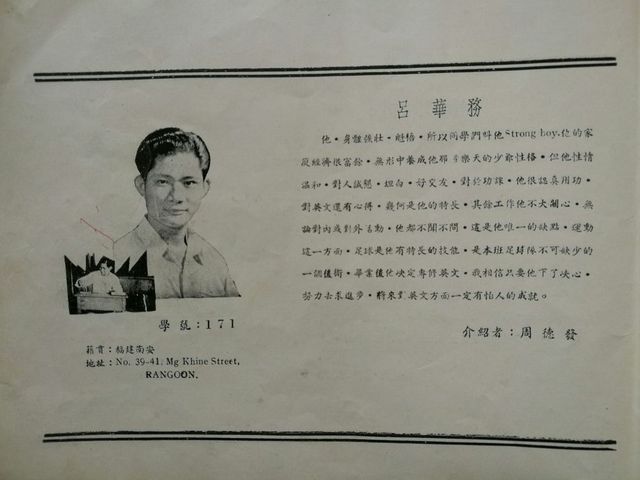 呂華務
他・身體強壯・魁梧・所以同學們叫他Strong boy.他的家
庭經濟很富餘・無形中養成他那享樂天的少爺性格・但他性情
溫和・對人誠懇・坦白・好交友・對於功課・他很認真用功・
對英文還有心得・幾何是他的特長・其餘工作他不大關心・無
論對內或對外活動・他都不聞不問・這是他唯一的缺點・運動
這一方面・足球是他有特長的技能・是本班足球隊不可缺少的
一個後衛・畢業後他決定專修英文・我相信只要他下了決心・
努力去求進步・將來對英文方面一定有怕人的成就。
介紹者：周德發
學號：171
籍貫：福建南安
地址：No. 39-41, Mg Khine Street,
RANGOON.